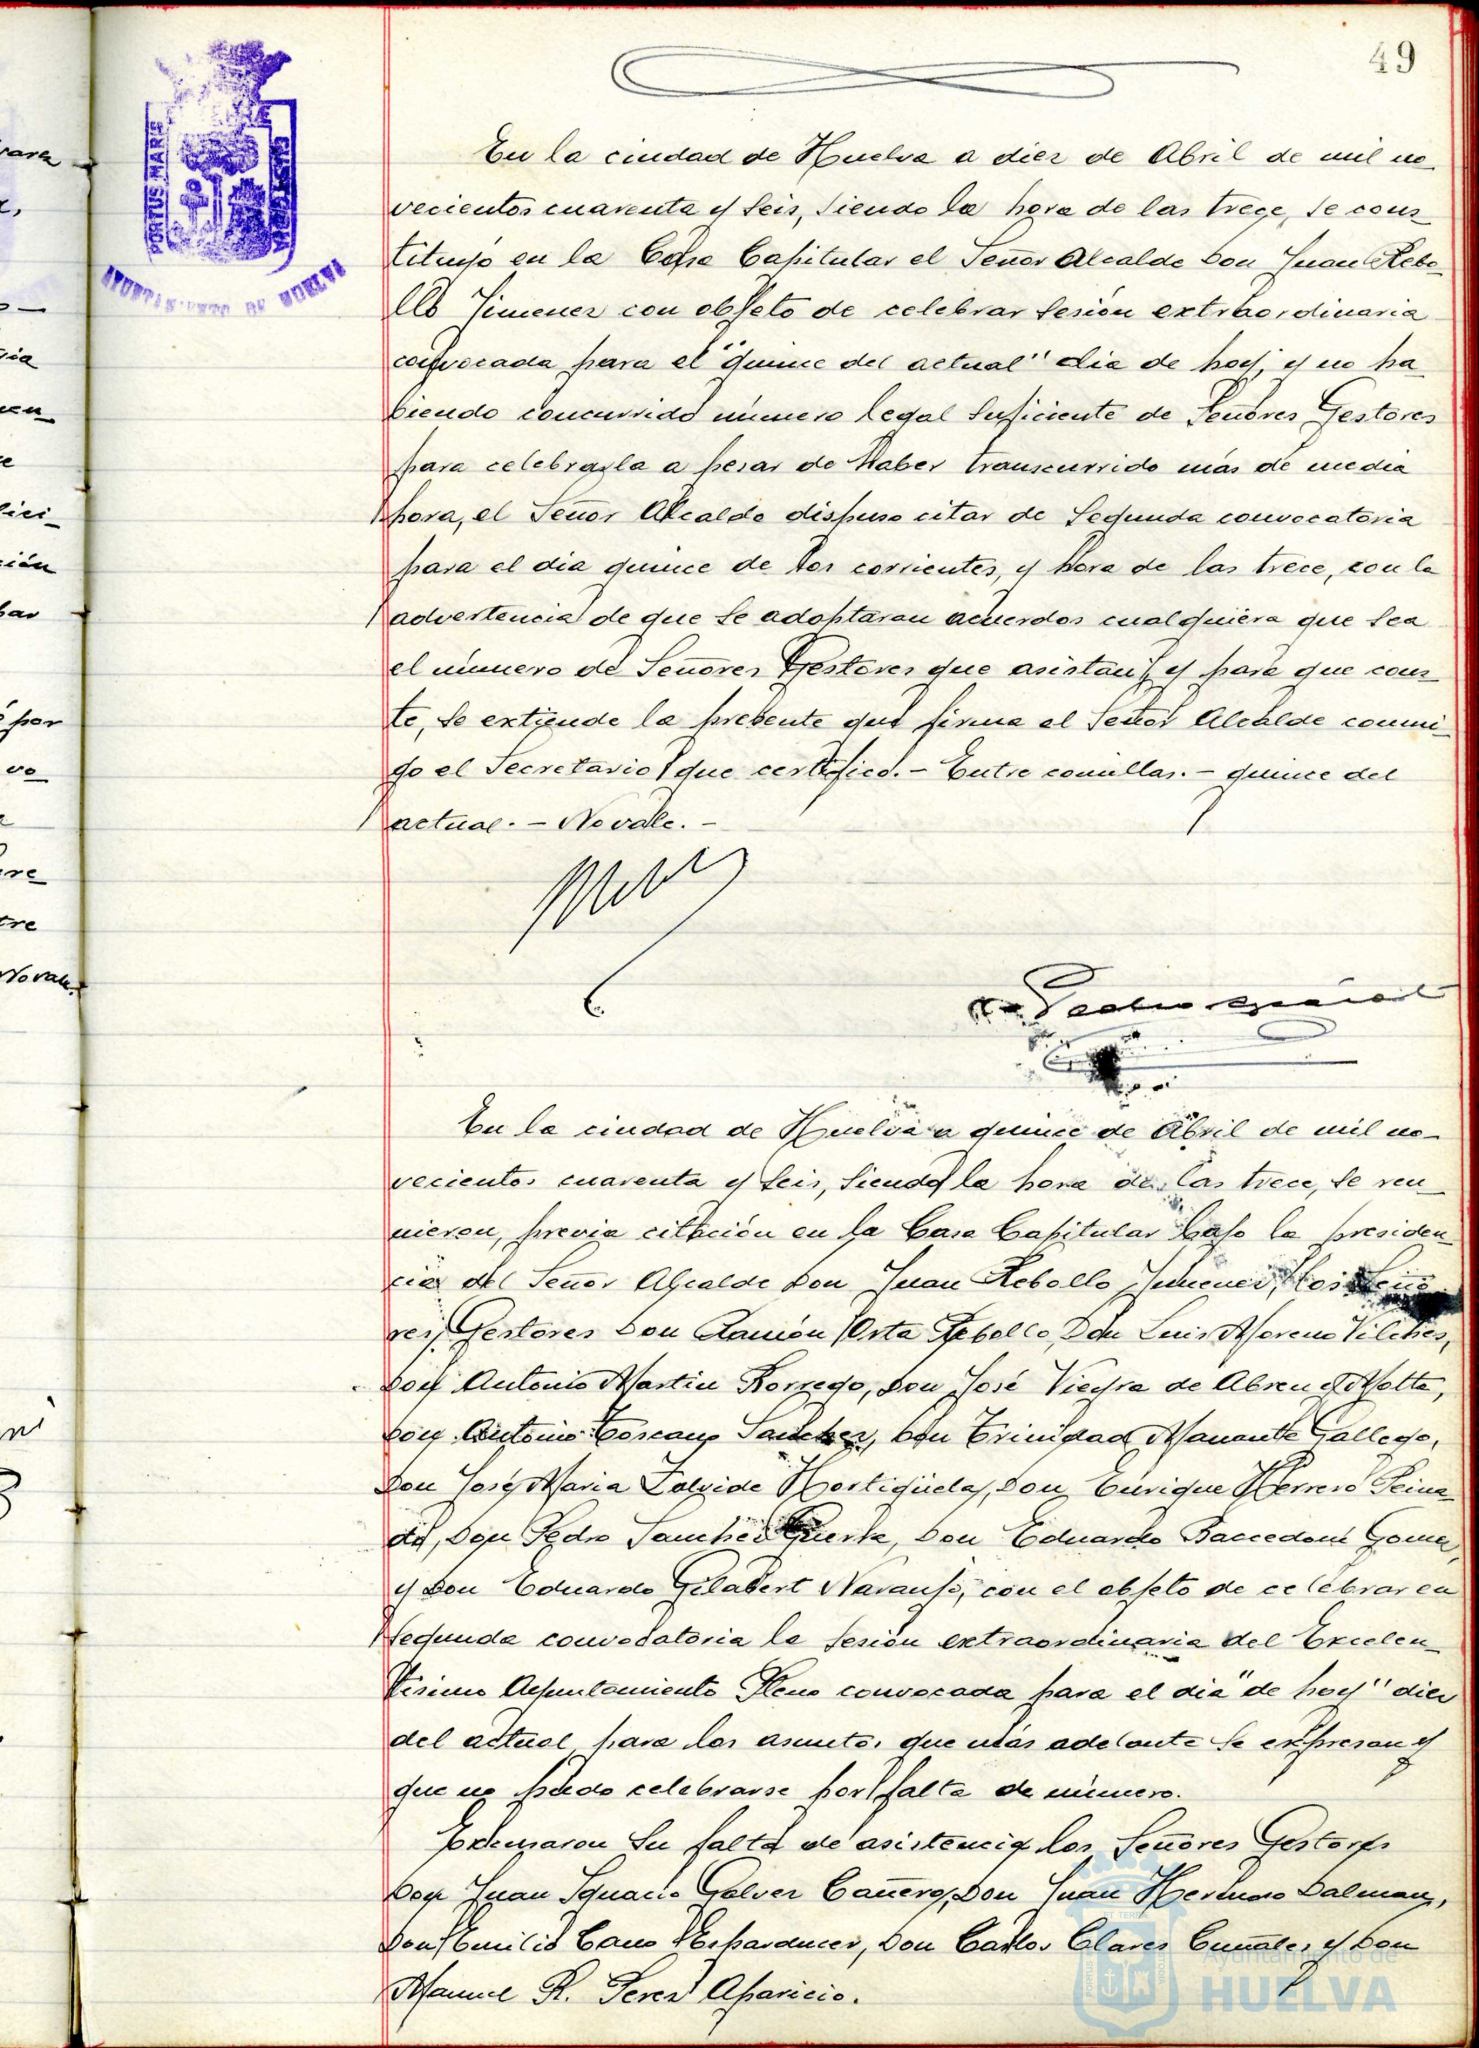 49
PORTUS MARIS
AYUNTAMIENTO DE HUELVA
En la ciudad de Huelva a diez de Abril de mil no-
vecientos cuarenta y seis, siendo la hora de las trece, se cons-
tituyó en la Casa Capitular el Señor Alcalde Don Juan Rebo-
llo Jimenez con objeto de celebrar sesión extraordinaria
convocada para el "quince del actual" dia de hoy, y no ha-
biendo concurrido número legal suficiente de Señores Gestores
para celebrarla a pesar de haber transcurrido más de media
hora, el Señor Alcalde dispuso citar de segunda convocatoria
para el dia quince de los corrientes, y hora de las trece, con la
advertencia de que se adoptaran acuerdos cualquiera que sea
el número de Señores Gestores que asistan, y para que cons-
te, se extiende la presente que firma el Señor Alcalde conmi-
go el Secretario que certifico.- Entre comillas.- quince del
actual.- No vale.-
En la ciudad de Huelva a quince de Abril de mil no-
vecientos cuarenta y seis, siendo la hora de las trece, se reu-
nieron, previa citación en la Casa Capitular bajo la presiden-
cia del Señor Alcalde Don Juan Rebollo Jimenez, los Seño-
res Gestores Don Ramón Orta Rebollo, Don Luis Moreno Vilches,
Don Antonio Martin Borrego, Don José Viegra de Abreu y Motta,
Don Antonio Toscano Sanchez, Don Trinidad Manante Gallego,
Don José Maria Zalvide Hortigüela, Don Enrique Herrero Peina-
do, Don Pedro Sanchez Guerra, Don Eduardo Baccedoni Gomez,
y Don Eduardo Gilabert Naranjo, con el objeto de celebrar en
segunda convocatoria la sesión extraordinaria del Excelen-
tisimo Ayuntamiento Pleno convocada para el dia "de hoy" diez
del actual para los asuntos que más adelante se expresan y
que no pudo celebrarse por falta de número.
Excusaron su falta de asistencia los Señores Gestores
Don Juan Ignacio Galvez Cañero, Don Juan Hermoso Dalman,
Don Emilio Cano Esparducer, Don Carlos Clares Cuñales y Don
Manuel R. Perez Aparicio.
Ayuntamiento de
HUELVA